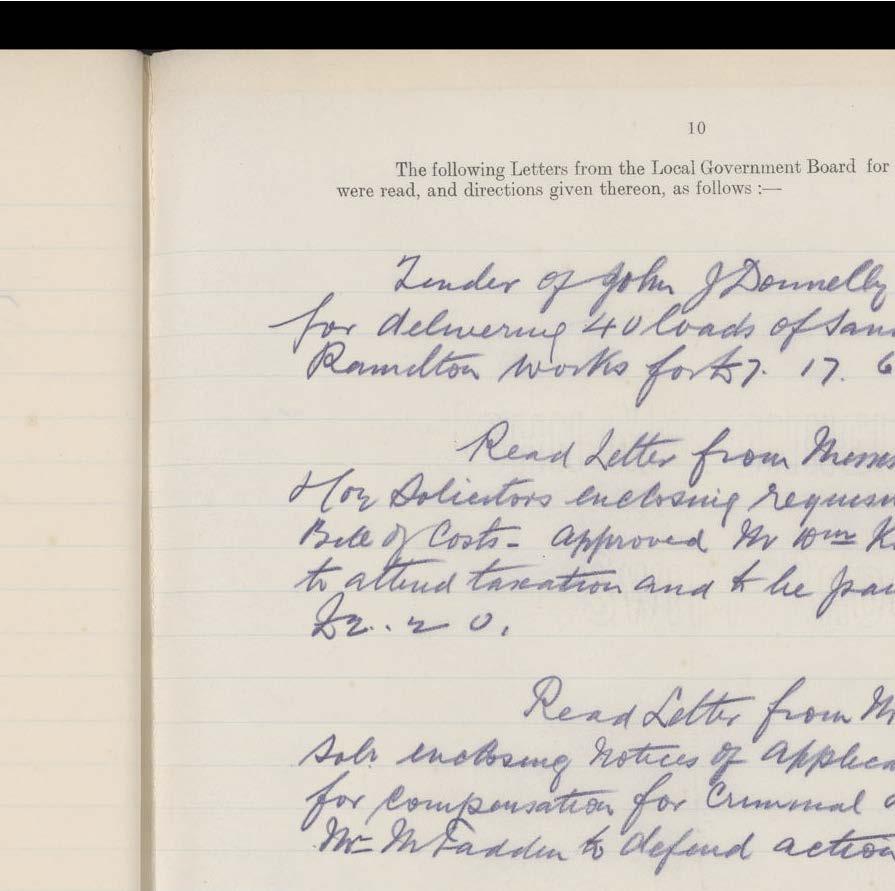 10
The following Letters from the Local Government Board for
were read, and directions given thereon, as follows :—
Tender of John J Donnelly
for delivering 40 loads of
Ramelton works for £7. 17. 6
Read Letter from Messrs
Solicitors enclosing
Bill of Costs - approved Mr Wm
to attend taxation and to be
£2.. 2 0.
Read Letter from
Solr enclosing Notices of
for compensation for Criminal
Mr McFadden to defend action